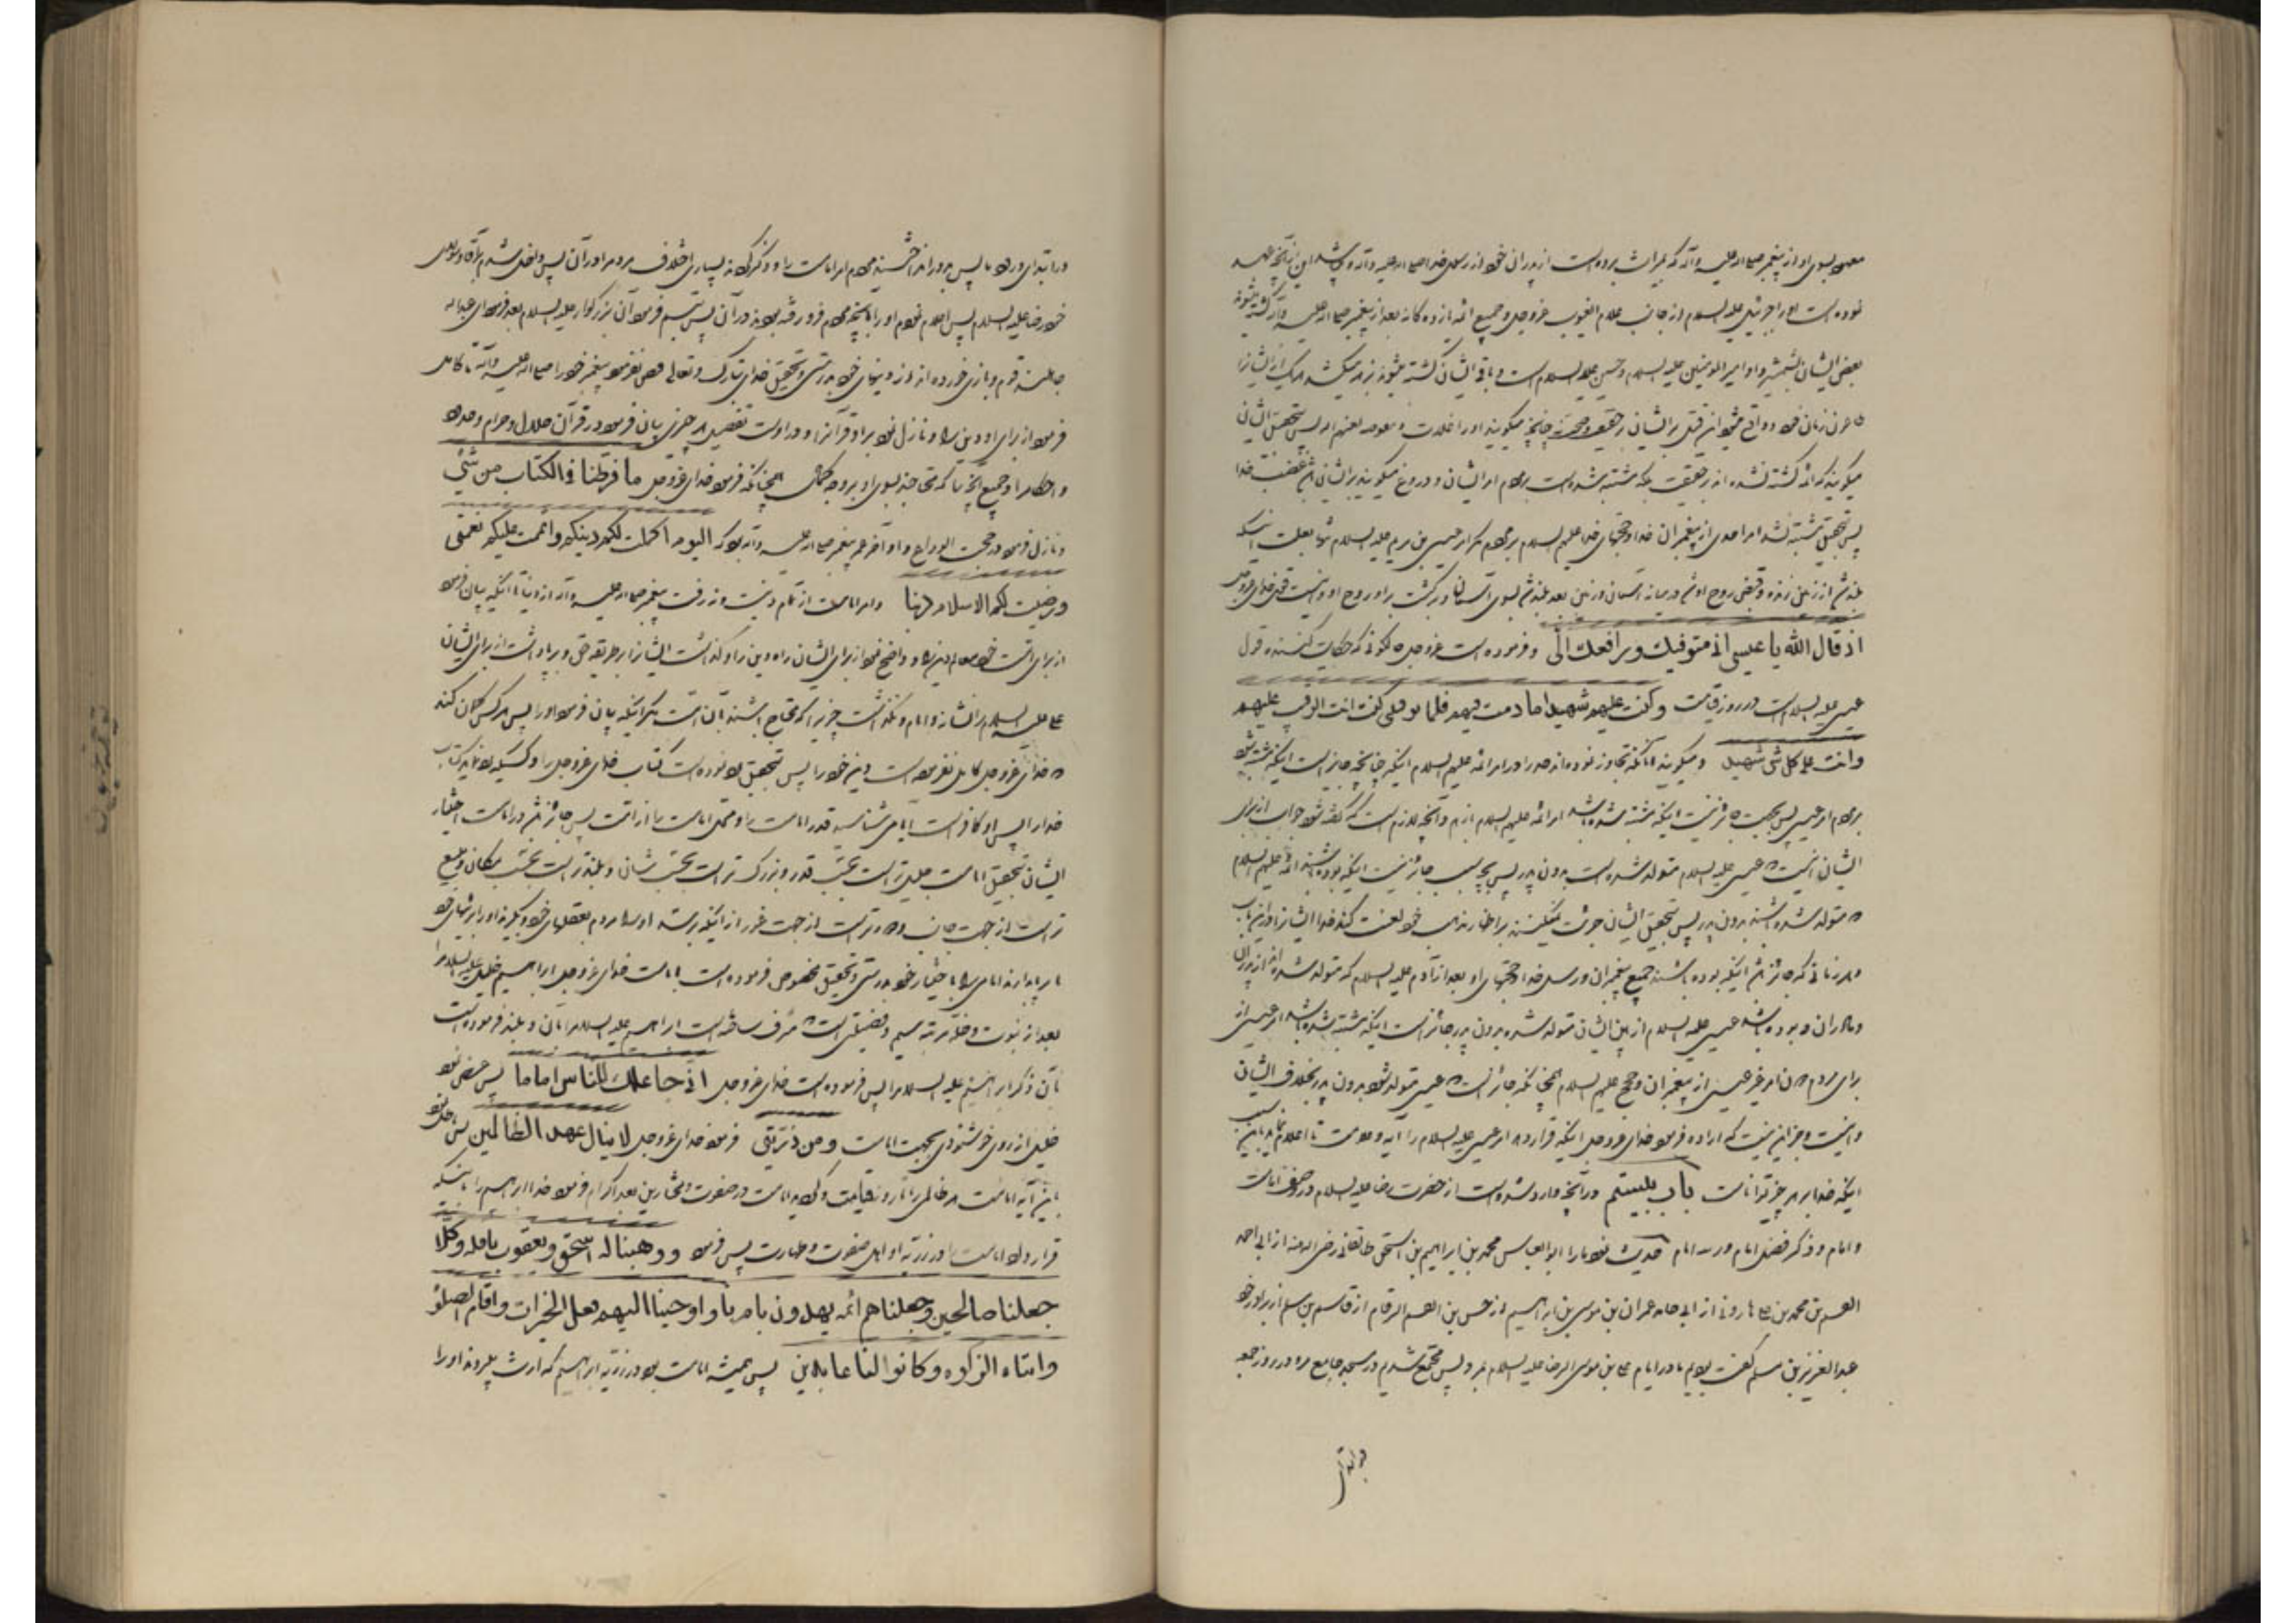 معهود بسوی او از پیغمبر صلی الله علیه وآله که بمیراث برده است از پدران خود از رسول خدا صلی الله علیه وآله و
نموده است او را جبرئیل علیه السلام از جانب علام الغیوب عزوجل و جمیع ائمه یازده کانه بعد از پیغمبر صلی الله علیه وآله کشته میشوند
بعضی ایشان بشمشیر و او امیر المومنین علیه السلام و حسین علیه السلام است و باقی ایشان کشته میشوند بزهر میکشد هر یک از ایشان را
طاغوت زمان خود و واقع میشود این قتل بر ایشان بر حقیقت و صحت نه چنانچه میکویند او را غلات و مفوضه لعنهم الله پس بتحقیق ایشان
میکویند که ائمه کشته نشده اند بر حقیقت بلکه مشتبه شده است بر مردم امر ایشان و دروغ میکویند بر ایشان باد غضب خدا
پس بتحقیق مشتبه نشد امر احدی از پیغمبران خدا و حجتهای خدا علیهم السلام بر مردم مکر امر عیسی بن مریم علیه السلام تنها بعلت اینکه
بلند شد از زمین زنده و قبض روح او شد در میانه آسمان و زمین بعد بلند شد بسوی آسمان و برکشت بر او روح او و اینست قول خدای عزوجل
اذ قال الله یا عیسی انی متوفیک ورافعک الی و فرموده است عزوجل که حکایت کننده قول
عیسی علیه السلام است در روز قیامت وکنت علیهم شهیدا ما دمت فیهم فلما توفیتنی کنت انت الرقیب علیهم
وانت علی کل شئ شهید و میکویند آنانکه تجاوز نموده اند حد را در امر ائمه علیهم السلام اینکه چنانچه جایز است اینکه مشتبه شود
بر مردم امر عیسی پس بجهت جایز نیست اینکه مشتبه شده باشد امر ائمه علیهم السلام نیز و آنچه لازم است که کفته شود جواب از برای
ایشان اینست که عیسی علیه السلام متولد شده است بدون پدر پس بچه سبب جایز نیست اینکه بوده باشند ائمه علیهم السلام
که متولد شده باشند بدون پدر پس بتحقیق ایشان جرئت نمیکنند بر اظهار مذهب خود لعنت کند خدا ایشان را در این باب
و هر زمانی که جایز باشد اینکه بوده باشند جمیع پیغمبران و رسل خدا و حجتهای او بعد از آدم علیه السلام که متولد شده اند از پدران
و مادران و بوده باشد عیسی علیه السلام از بین ایشان متولد شده بدون پدر جایز است اینکه مشتبه شده باشد امر عیسی از
برای مردم نه امر غیر عیسی از پیغمبران و حجج علیهم السلام همچنانکه جایز است که عیسی متولد شود بدون پدر بخلاف ایشان
و اینست و جز این نیست که اراده فرمود خدای عزوجل اینکه قرار دهد امر عیسی علیه السلام را آیه و علامت تا اعلام نماید باین سبب
اینکه خدا بر هر چیز تواناست باب بیستم در آنچه وارد شده است از حضرت رضا علیه السلام در وصف امامت
و امام و ذکر فضل امام و رتبه امام حدیث نمود ما را ابوالعباس محمد بن ابراهیم بن اسحق طالقانی رضی الله عنه از ابی احمد
القسم بن محمد بن علی هارونی از ابی حامد عمران بن موسی بن ابراهیم از حسن بن القسم الرقام از قاسم بن مسلم از برادر خود
عبدالعزیز بن مسلم کفت بودیم ما در ایام علی بن موسی الرضا علیه السلام بمرو پس مجتمع شدیم در مسجد جامع مرو در روز جمعه
در ابتدای
در ابتدای ورود ما پس مردم امر امامت را و ذکر کردند بسیاری اختلاف مردم را در آن پس داخل شدم بر آقا و مولای
خود رضا علیه السلام پس اعلام نمودم او را بآنچه مردم فرو رفته بودند در آن پس تبسم فرمود آن بزرکوار علیه السلام بعد فرمود ای عبد الـ
جاهلند قوم و بازی خورده اند از دینهای خود بدرستی و تحقیق خدای تبارک و تعالی قبض نفرمود پیغمبر خود را صلی الله علیه وآله تا کامل
فرمود از برای او دین را و نازل نمود بر او قرآن را و در اوست تفصیل هر چیزی بیان فرمود در قرآن حلال و حرام و حدود
و احکام را و جمیع آنچه را که محتاجند بسوی او بر وجه کمال همچنانکه فرمود خدای عزوجل ما فرطنا فی الکتاب من شئ
و نازل فرمود در حجت الوداع و او آخر عمر پیغمبر صلی الله علیه وآله بود که الیوم اکملت لکم دینکم واتممت علیکم نعمتی
ورضیت لکم الاسلام دینا و امر امامت از تمام دینست و نرفت پیغمبر صلی الله علیه وآله از دنیا تا اینکه بیان فرمود
از برای امت خود معالم دین را و واضح نمود از برای ایشان راه دین را و کذاشت ایشان را بر طریقه حق و برپا داشت از برای ایشان
علی علیه السلام را نشانه و امام و نکذاشت چیزیرا که محتاج باشند بآن امت مکر اینکه بیان فرمود او را پس هر کس کمان کند
که خدای عزوجل کامل نفرموده است دین خود را پس بتحقیق رد نموده است کتاب خدای عزوجل را و کسیکه رد نماید کتاب
خدا را پس او کافر است آیا می شناسید قدر امامت را و محل امامت را از امت پس جایز باشد در امامت اختیار
ایشان بتحقیق امامت جلیل تر است بحسب قدر و بزرک تر است بحسب شان و بلندتر است بحسب مکان و منیع
تر است از جهت جانب و دورتر است از جهت غور از اینکه برسند او را مردم بعقلهای خود و بگیرند او را برایهای خود
یا برپا دارند امامی را باختیار خود بدرستی و تحقیق مخصوص فرموده است بامامت خدای عزوجل ابراهیم خلیل علیه السلام را
بعد از نبوت و خلت مرتبه سیم و فضیلتی است که مشرف ساخته است ابراهیم علیه السلام را بآن و بلند فرموده است
بآن ذکر ابراهیم علیه السلام را پس فرموده است خدای عزوجل انی جاعلک للناس اماما پس عرض نمود
خلیل از روی خوشنودی بجهت امامت ومن ذریتی فرمود خدای عزوجل لا ینال عهدی الظالمین پس باطل نمود
این آیه امامت هر ظالمی را تا روز قیامت و کردید امامت در صفوت و مختارین بعد اکرام فرمود خدا ابراهیم را باینکه
قرار داد امامت را در ذریه او اهل صفوت و طهارت پس فرمود ووهبنا له اسحق ویعقوب نافلة وکلا
جعلنا صالحین وجعلناهم ائمه یهدون بامرنا واوحینا الیهم فعل الخیرات واقام الصلوة
وایتاء الزکوه وکانوا لنا عابدین پس همیشه امامت بود در ذریه ابراهیم که ارث میبردند او را